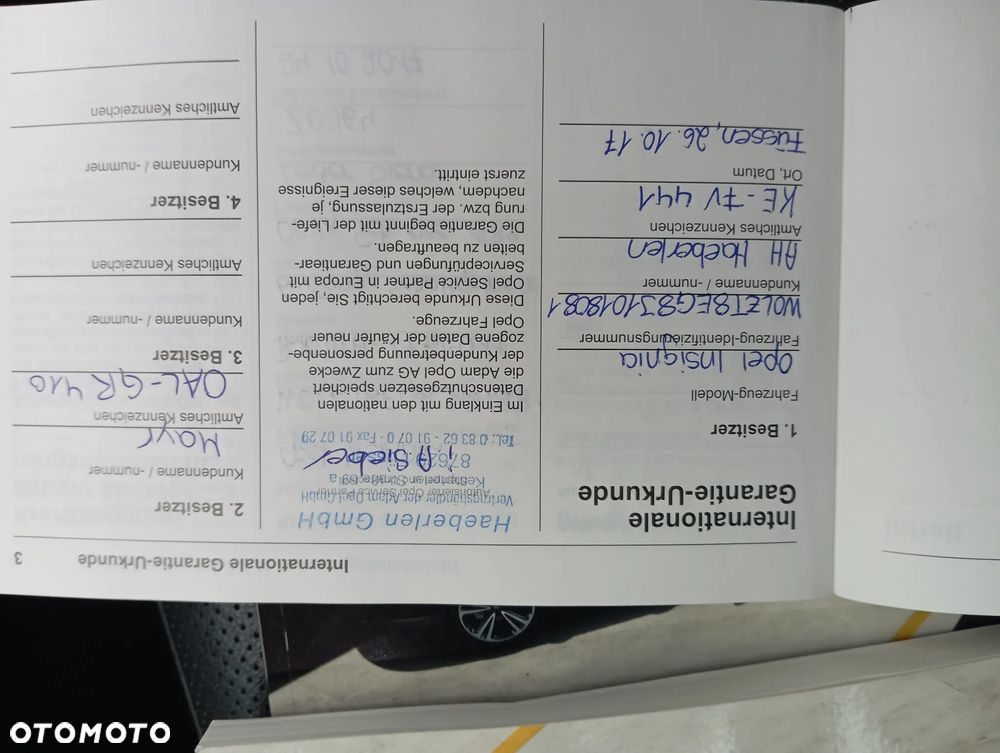 Internationale Garantie-Urkunde
3
Internationale
Garantie-Urkunde
1. Besitzer
Fahrzeug-Modell
Opel Insignia
Fahrzeug-Identifizierungsnummer
W0LZT8EG8J1018081
Kundenname / -nummer
AH Haeberlen
Amtliches Kennzeichen
KE-TV 441
Ort, Datum
Füssen, 26.10.17
Haeberlen GmbH
Vertragshändler der Adam Opel GmbH
i.A Sieber
Tel.: 0 83 62 - 91 07 0 · Fax 91 07 29
Im Einklang mit den nationalen
Datenschutzgesetzen speichert
die Adam Opel AG zum Zwecke
der Kundenbetreuung personenbe-
zogene Daten der Käufer neuer
Opel Fahrzeuge.
Diese Urkunde berechtigt Sie, jeden
Opel Service Partner in Europa mit
Serviceprüfungen und Garantiear-
beiten zu beauftragen.
Die Garantie beginnt mit der Liefe-
rung bzw. der Erstzulassung, je
nachdem, welches dieser Ereignisse
zuerst eintritt.
2. Besitzer
Kundenname / -nummer
Mayr
Amtliches Kennzeichen
OAL-GR 410
3. Besitzer
Kundenname / -nummer
Amtliches Kennzeichen
4. Besitzer
Kundenname / -nummer
Amtliches Kennzeichen
OTOMOTO